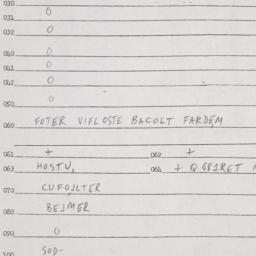 030. 0
031. 0
032 0
040 0
041 0
042 0
050 0
060 FOTER VIFLOSTE BACOLT FARDEM
061 + 062 +
063 HOSTU, 064 + Q481RET
070 CUFOJLTER
080 BEJMER
090 0
100 SOD-